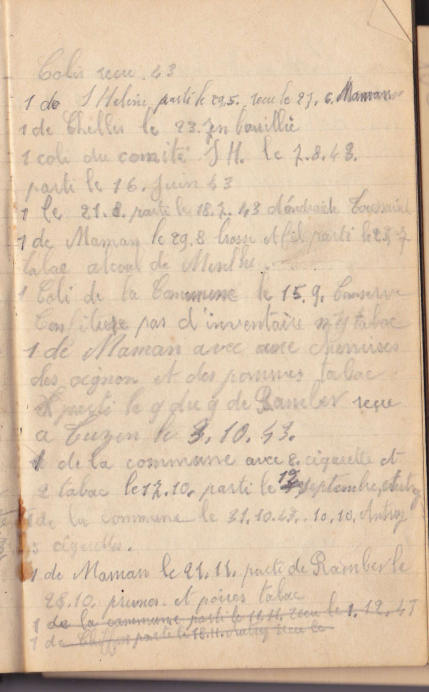 Colis reçu 43
1 de S Helene parti le 29.5. reçu le 27.6. Maman
1 de Chilles le 23. en bouillie
1 coli du comité S H. le 7.8.43.
parti le 16. Juin 43
1 le 21.8. parti le 18.7. 43 Toussaint
1 de Maman le 29.8 brosse et fil parti le 23-7
tabac alcool de Menthe.
1 Coli de la Commune le 15.9. Conserve
Confiture pas d'inventaire ni tabac
1 de Maman avec une chemises
des oignon et des pommes tabac
parti le 9 du 9 de Ramber reçu
a le 3.10.43.
1 de la commune avec 8. cigarette et
2 tabac le 17.10. parti le septembre,
1 de la commune le 31.10.43. .10.10,
cigarettes.
1 de Maman le 21.11. parti de Ramber le
28.10. prunes et poires tabac
1 de la commune parti le 11.11. reçu le 1.12.43
1 de parti le 18.11. reçu le